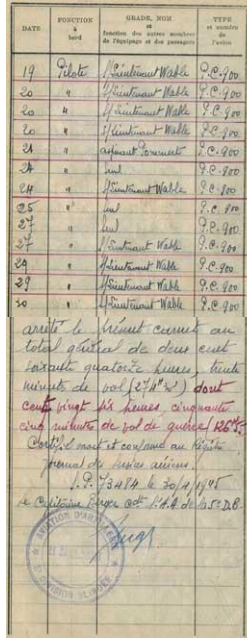 DATE FONCTION à bord GRADE, NOM et fonction des autres membres de l'équipage et des passagers TYPE et numéro de l'avion
19 Pilote S/Lieutenant Wable P.C. 900
20 " S/Lieutenant Wable P.C. 900
20 " S/Lieutenant Wable P.C. 900
20 " S/Lieutenant Wable P.C. 900
21 " aspirant P.C. 900
24 " seul P.C. 900
24 " S/Lieutenant Wable P.C. 900
25 " seul P.C. 900
27 " seul P.C. 900
27 " S/Lieutenant Wable P.C. 900
29 " S/Lieutenant Wable P.C. 900
29 " S/Lieutenant Wable P.C. 900
30 " S/Lieutenant Wable P.C. 900
arrêté le présent carnet au
total général de deux cent
soixante quatorze heures, trente
minutes de vol dont
cent vingt six heures, cinquante
cinq minutes de vol de guerre
Certifié exact et conforme au Registre
journal des services aériens.
S.P. 73484 le 30/4/1945
le Capitaine Berger Cdt l'A.A de la 5e D.B.
AVIATION D'ARTILLERIE
5e DIVISION BLINDÉE